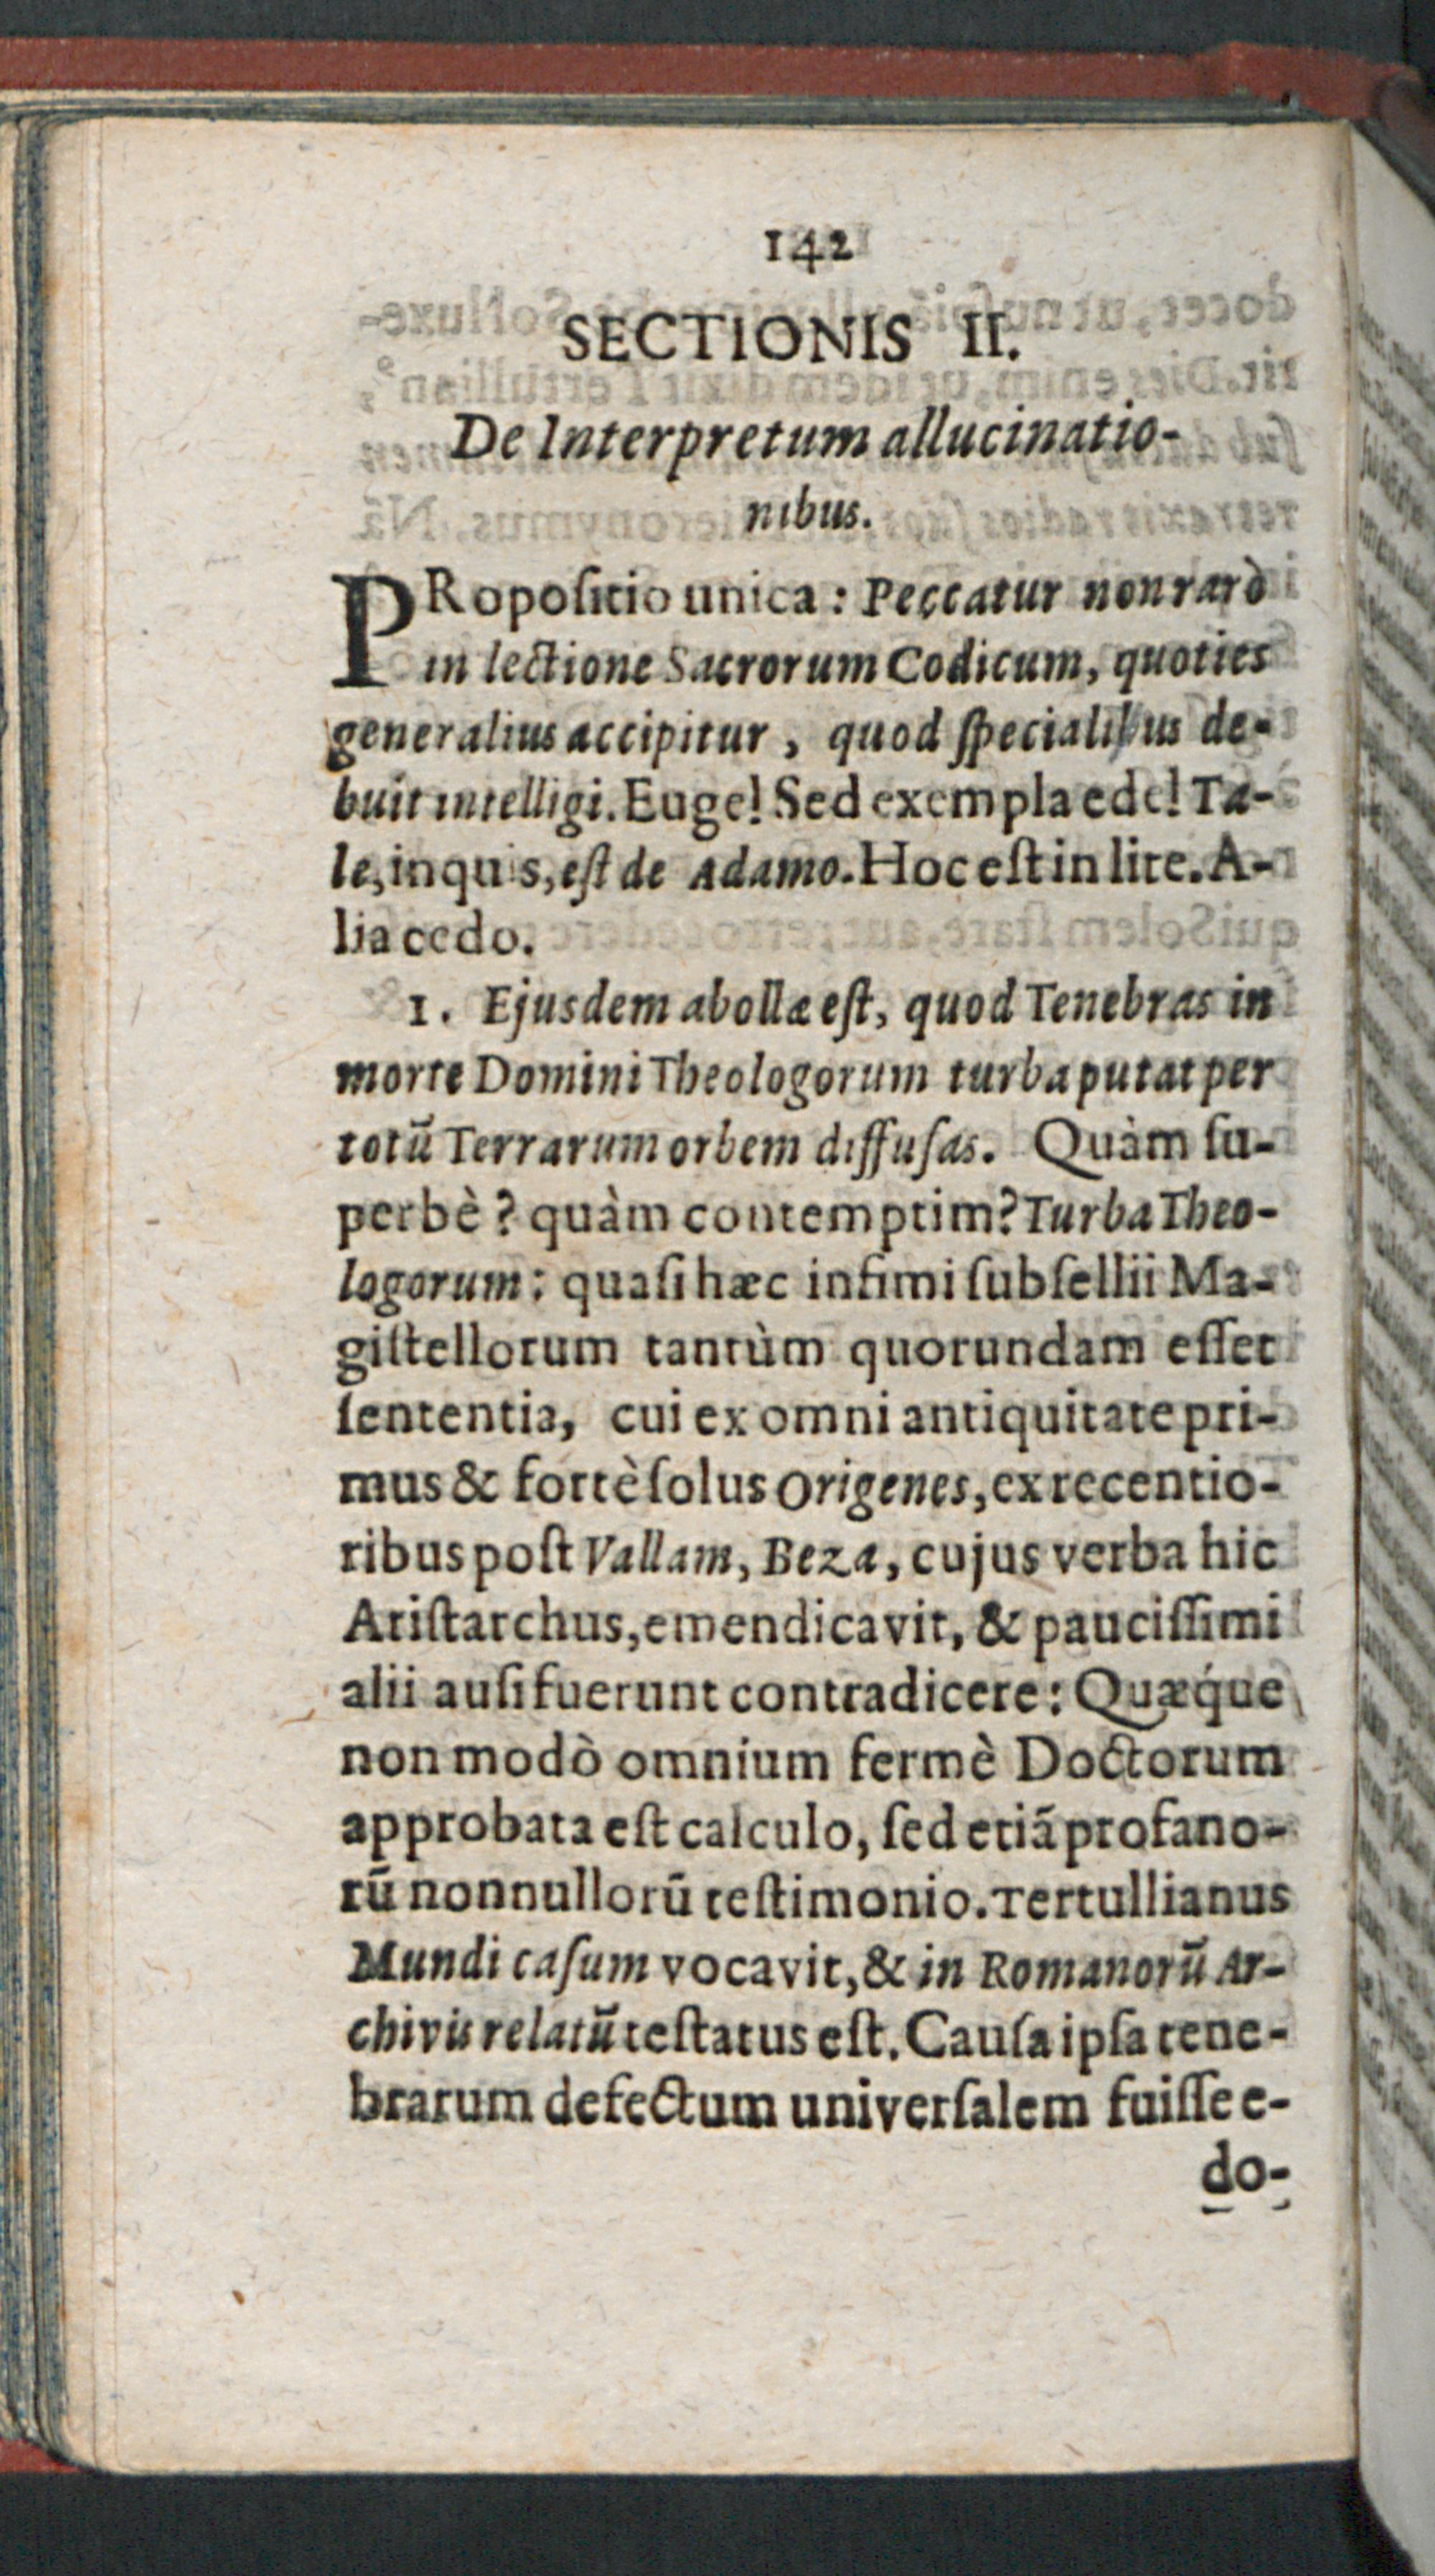 142
SECTIONIS II.
De Interpretum allucinatio-
nibus.
PRopoſitio unica: Peccatur non rarò
in lectione Sacrorum Codicum, quoties
generalius accipitur, quod ſpecialius de-
buit intelligi. Euge! Sed exempla ede! Ta-
le, inquis, eſt de Adamo. Hoc eſt in lite. A-
lia cedo.
1. Ejusdem abollæ eſt, quod Tenebras in
morte Domini Theologorum turba putat per
totū Terrarum orbem diffuſas. Quàm ſu-
perbè? quàm contemptim? Turba Theo-
logorum: quaſi hæc infimi ſubſellii Ma-
giſtellorum tantùm quorundam eſſet
ſententia, cui ex omni antiquitate pri-
mus & fortè ſolus Origenes, ex recentio-
ribus poſt Vallam, Beza, cujus verba hic
Ariſtarchus, emendicavit, & pauciſſimi
alii auſi fuerunt contradicere: Quæq́ue
non modò omnium fermè Doctorum
approbata eſt calculo, ſed etiã profano-
rū nonnullorū teſtimonio. Tertullianus
Mundi caſum vocavit, & in Romanorū Ar-
chivis relatū teſtatus eſt. Cauſa ipſa tene-
brarum defectum univerſalem fuiſſe e-
do-